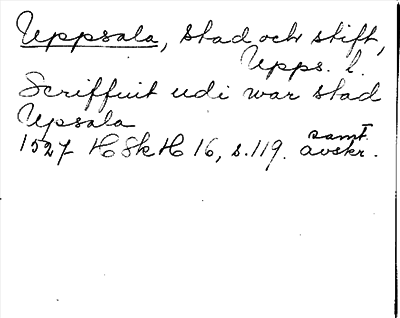 Uppsala, stad och stift,
Upps. l.
Scriffuit udi war stad
Upsala
1527 HSkH 16, s. 119. samt. avskr.